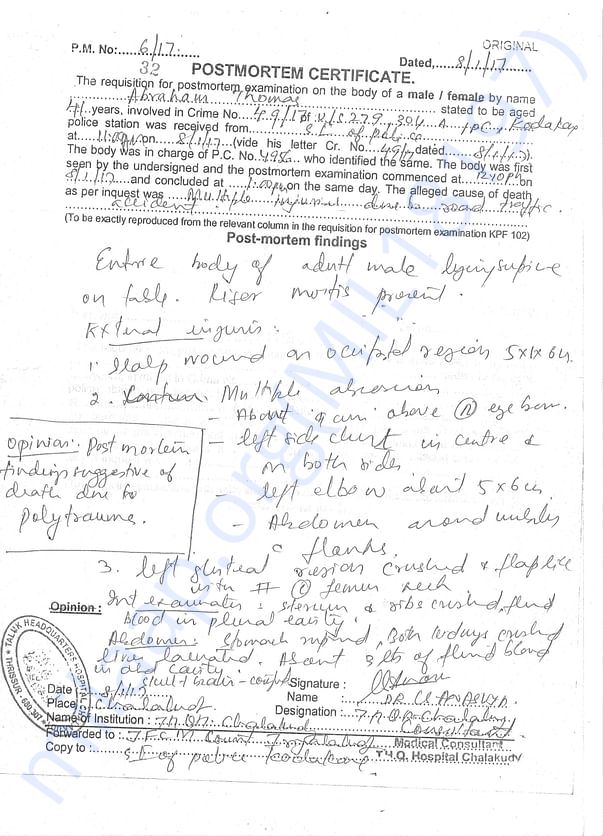 ORIGINAL
P.M. No:......6/17.......... Dated,.......8/1/17..........
32
POSTMORTEM CERTIFICATE.
The requisition for postmortem examination on the body of a male / female by name
Abraham Thomas stated to be aged
41 years, involved in Crime No. 49/17 u/s 279, 304 A IPC, Kodakar
police station was received from S I of police
at 11:00 on 8/1/17 (vide his letter Cr. No. 49/17 dated 8/1/17).
The body was in charge of P.C. No. 4956 who identified the same. The body was first
seen by the undersigned and the postmortem examination commenced at 12:40 PM on
8/1/17 and concluded at 1:00 PM on the same day. The alleged cause of death
as per inquest was Multiple injuries due to road traffic
accident.
(To be exactly reproduced from the relevant column in the requisition for postmortem examination KPF 102)
Post-mortem findings
Entire body of adult male lying supine
on table. Riger mortis present.
External injuries:
1. Scalp wound on occipital region 5x1x6cm
2. Multiple abrasions
- About cm above (R) eye brow.
- left side chest in centre &
on both sides
- left elbow about 5x6cm
- Abdomen around umbilicus
flanks.
Opinion: Post mortem
findings suggestive of
death due to
polytrauma.
3. left gluteal region crushed & flap like
with # femur neck
Opinion :
Int examination: sternum & ribs crushed, fluid
blood in plural cavity.
Abdomen: Stomach, Both kidneys crushed
liver lacerated. About 3 lts of fluid blood
in abd cavity
skull + brain -
TALUK HEADQUARTERS HOSPITAL
THRISSUR - 680 307
Date : 8/1/17 Signature :
Place : Chalakudy Name : DR.
Name of Institution : T.H.Q.H. Chalakudy Designation : Chalakudy
Consultant
Forwarded to : J.F.C.M Court Irinjalakuda Medical Consultant
Copy to : S.I of police T.H.Q. Hospital Chalakudy